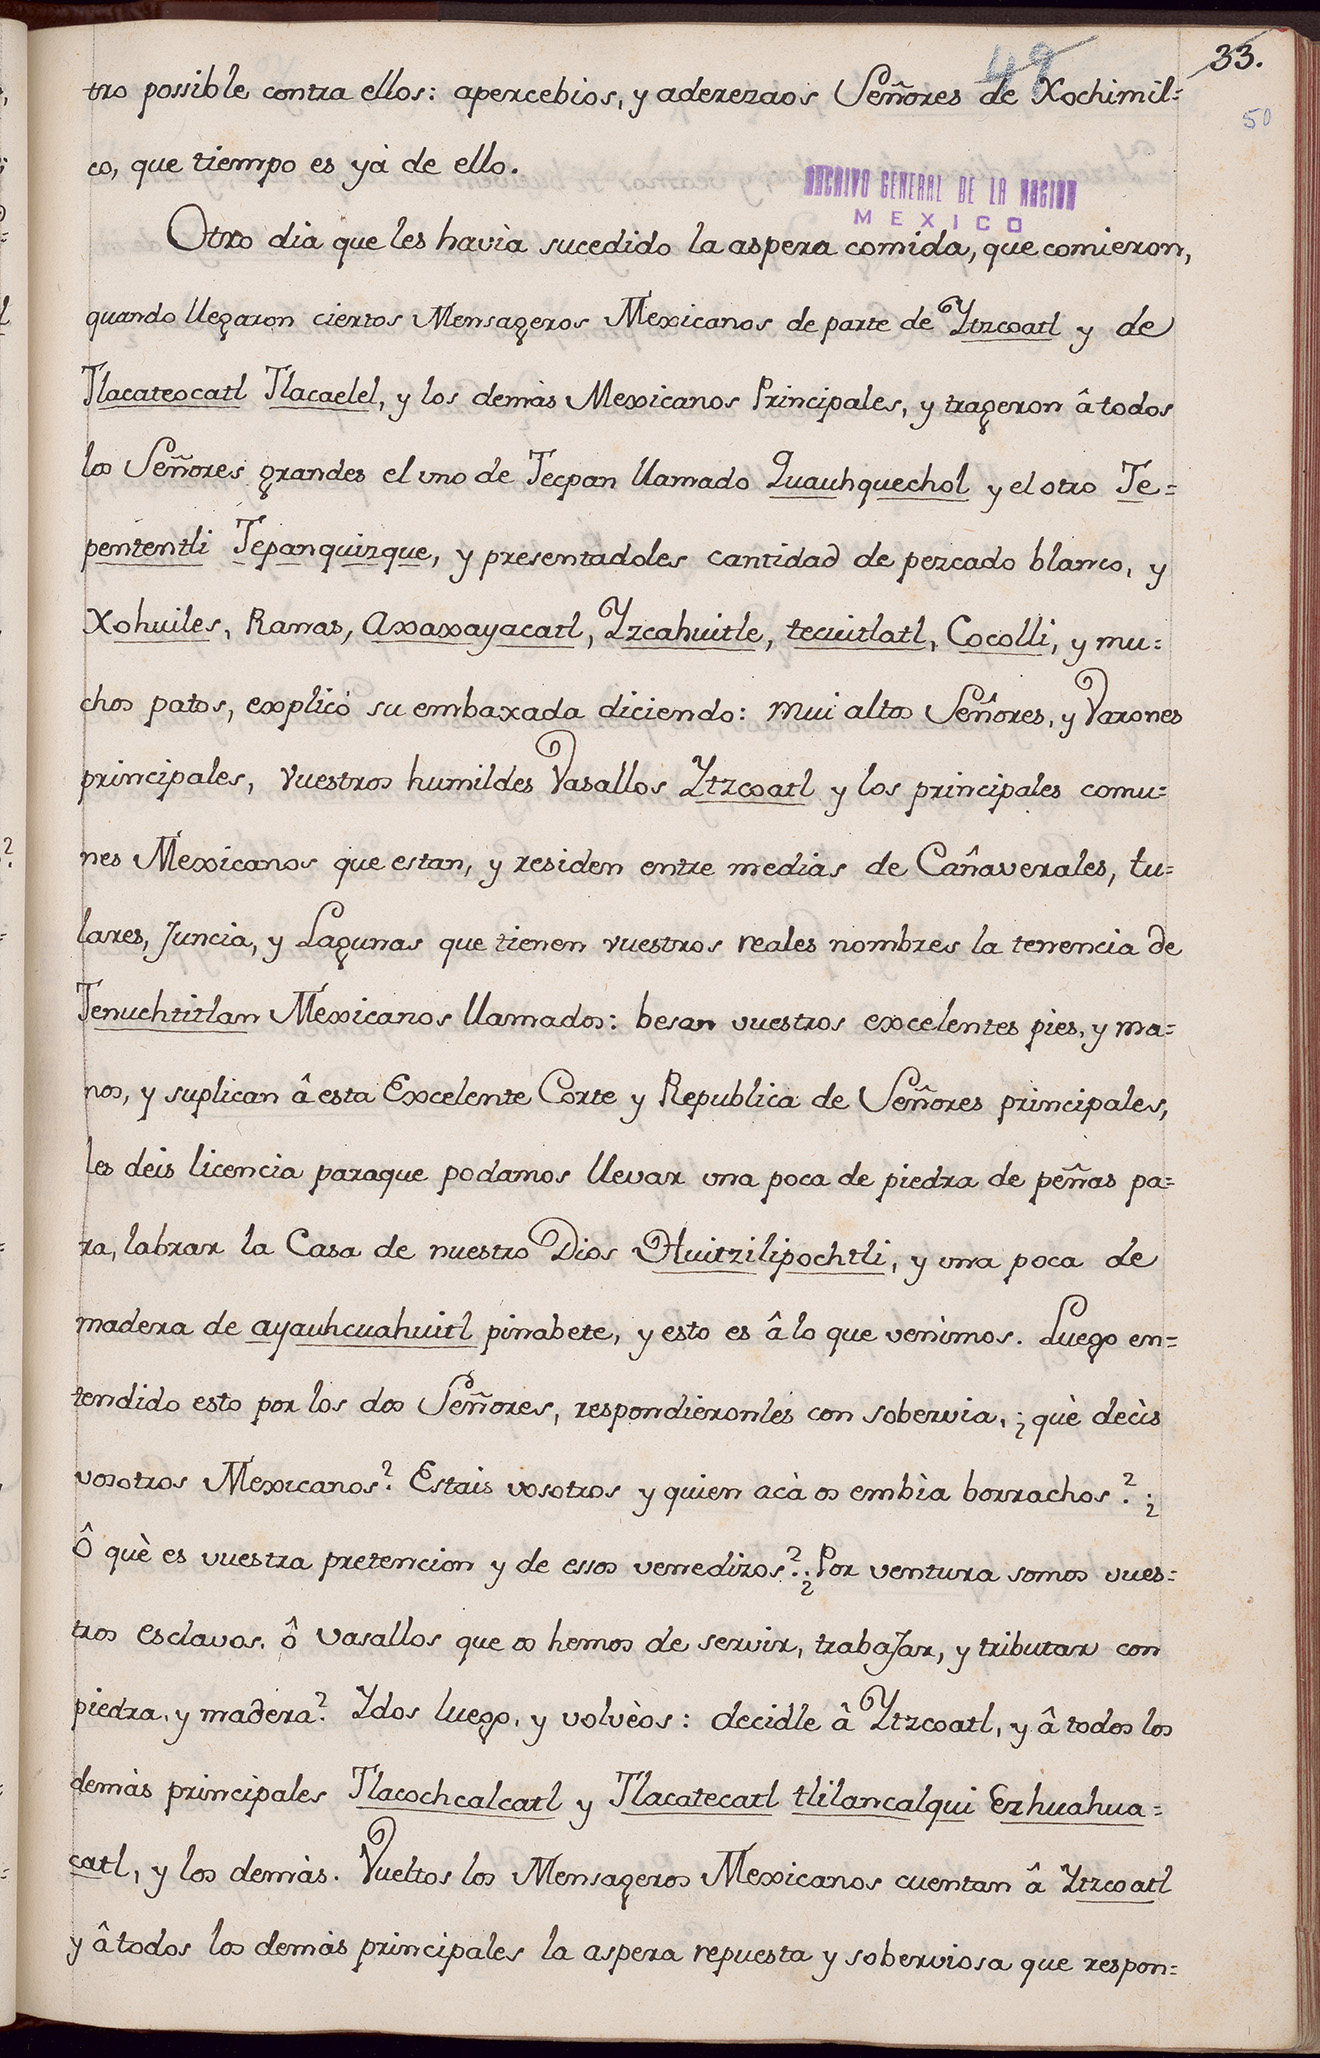 33.
49
50
tro possible contra ellos: apercebios, y aderezaos Señores de Xochimil=
co, que tiempo es yà de ello.
ARCHIVO GENERAL DE LA NACION
MEXICO
Otro dia que les havìa sucedido la aspera comida, que comieron,
quando llegaron ciertos Mensageros Mexicanos de parte de Ytzcoatl y de
Tlacateocatl Tlacaelel, y los demàs Mexicanos Principales, y trageron â todos
los Señores grandes el uno de Tecpan llamado Quauhquechol y el otro Te=
pententli Tepanquizque, y presentadoles cantidad de pezcado blanco, y
Xohuiles, Ranas, Axaxayacatl, Yzcahuitle, tecuitlatl, Cocolli, y mu=
chos patos, explicò su embaxada diciendo: Mui altos Señores, y Varones
principales, vuestros humildes Vasallos Ytzcoatl y los principales comu=
nes Mexicanos que estan, y residen entre medias de Cañaverales, tu=
lares, Juncia, y Lagunas que tienen vuestros reales nombres la tenencia de
Tenuchtitlan Mexicanos llamados: besan vuestros excelentes pies, y ma=
nos, y suplican â esta Excelente Corte y Republica de Señores principales,
les deis licencia paraque podamos llevar una poca de piedra de peñas pa=
ra, labrar la Casa de nuestro Dios Huitzilipochtli, y una poca de
madera de ayauhcuahuitl pinabete, y esto es â lo que venimos. Luego en=
tendido esto por los dos Señores, respondieronles con sobervia, ¿què decìs
vosotros Mexicanos? Estais vosotros y quien acà os embìa borrachos? ¿
Ô què es vuestra pretencion y de essos venedizos? ¿Por ventura somos vues=
tros esclavos, ô vasallos que os hemos de servir, trabaJar, y tributar con
piedra, y madera? Ydos luego, y volvèos: decidle â Ytzcoatl, y â todos los
demàs principales Tlacochcalcatl y Tlacatecatl tlilancalqui Ezhuahua=
catl, y los demàs. Vueltos los Mensageros Mexicanos cuentan â Ytzcoatl
y â todos los demàs principales la aspera repuesta y soberviosa que respon=